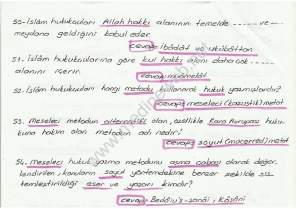 50- İslâm hukukçuları Allah hakkı alanının temelde ---- ve ----
meydana geldiğini kabul eder.
cevap: ibâdât ve ukûbâttan
51- İslâm hukukçularına göre kul hakkı alanı daha çok ----
alanını içerir.
cevap: muâmelât
52- İslâm hukukçuları hangi metodu kullanarak hukuk yazmışlardır?
cevap: meseleci (kazuistik) metot
53- Meseleci metodun alternatifi olan, özellikle Kara Avrupası huku-
kuna hakim olan metodun adı nedir?
cevap: soyut (mücerred) metot
54- Meseleci hukuk yazma metodunu aşma çabası olarak değer-
lendirilen, konuların soyut yöntemdekine benzer şekilde sis-
temleştirildiği eser ve yazarı kimdir?
cevap: Bedâiu's-sanâi, Kâsânî